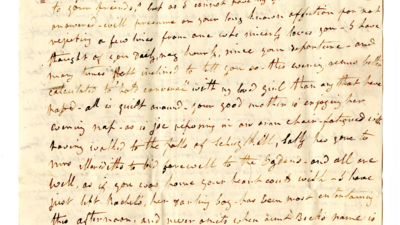 to your friends," but as I cannot have my
answered - will presume on your long known affection for not
rejecting a few lines from one who sincerely loves you - I have
thought of you daily, nay hourly, since your departure - and
many times felt inclined to tell you so - this evening seems better
calculated to hold converse with my good girl than any that have
past - all is quiet around - your good mother is enjoying her
evening nap - as is Joe reposing in an arm chair - fatigued with
having walked to the falls of Schuylkill, Sally has gone to
Mrs Merediths to bid farewell to the Ogdens - and all are
well, as if you was home your heart could wish - I have
just left Rachels, her Yankey boy - has been most entertaining
this afternoon, and never omits when aunt Becks name is